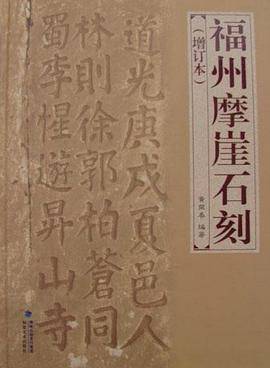 福州摩崖石刻
（增订本）
黄荣春 编著
道光庚戌夏邑人
林則徐郭柏蒼同
蜀李惺遊昇山寺